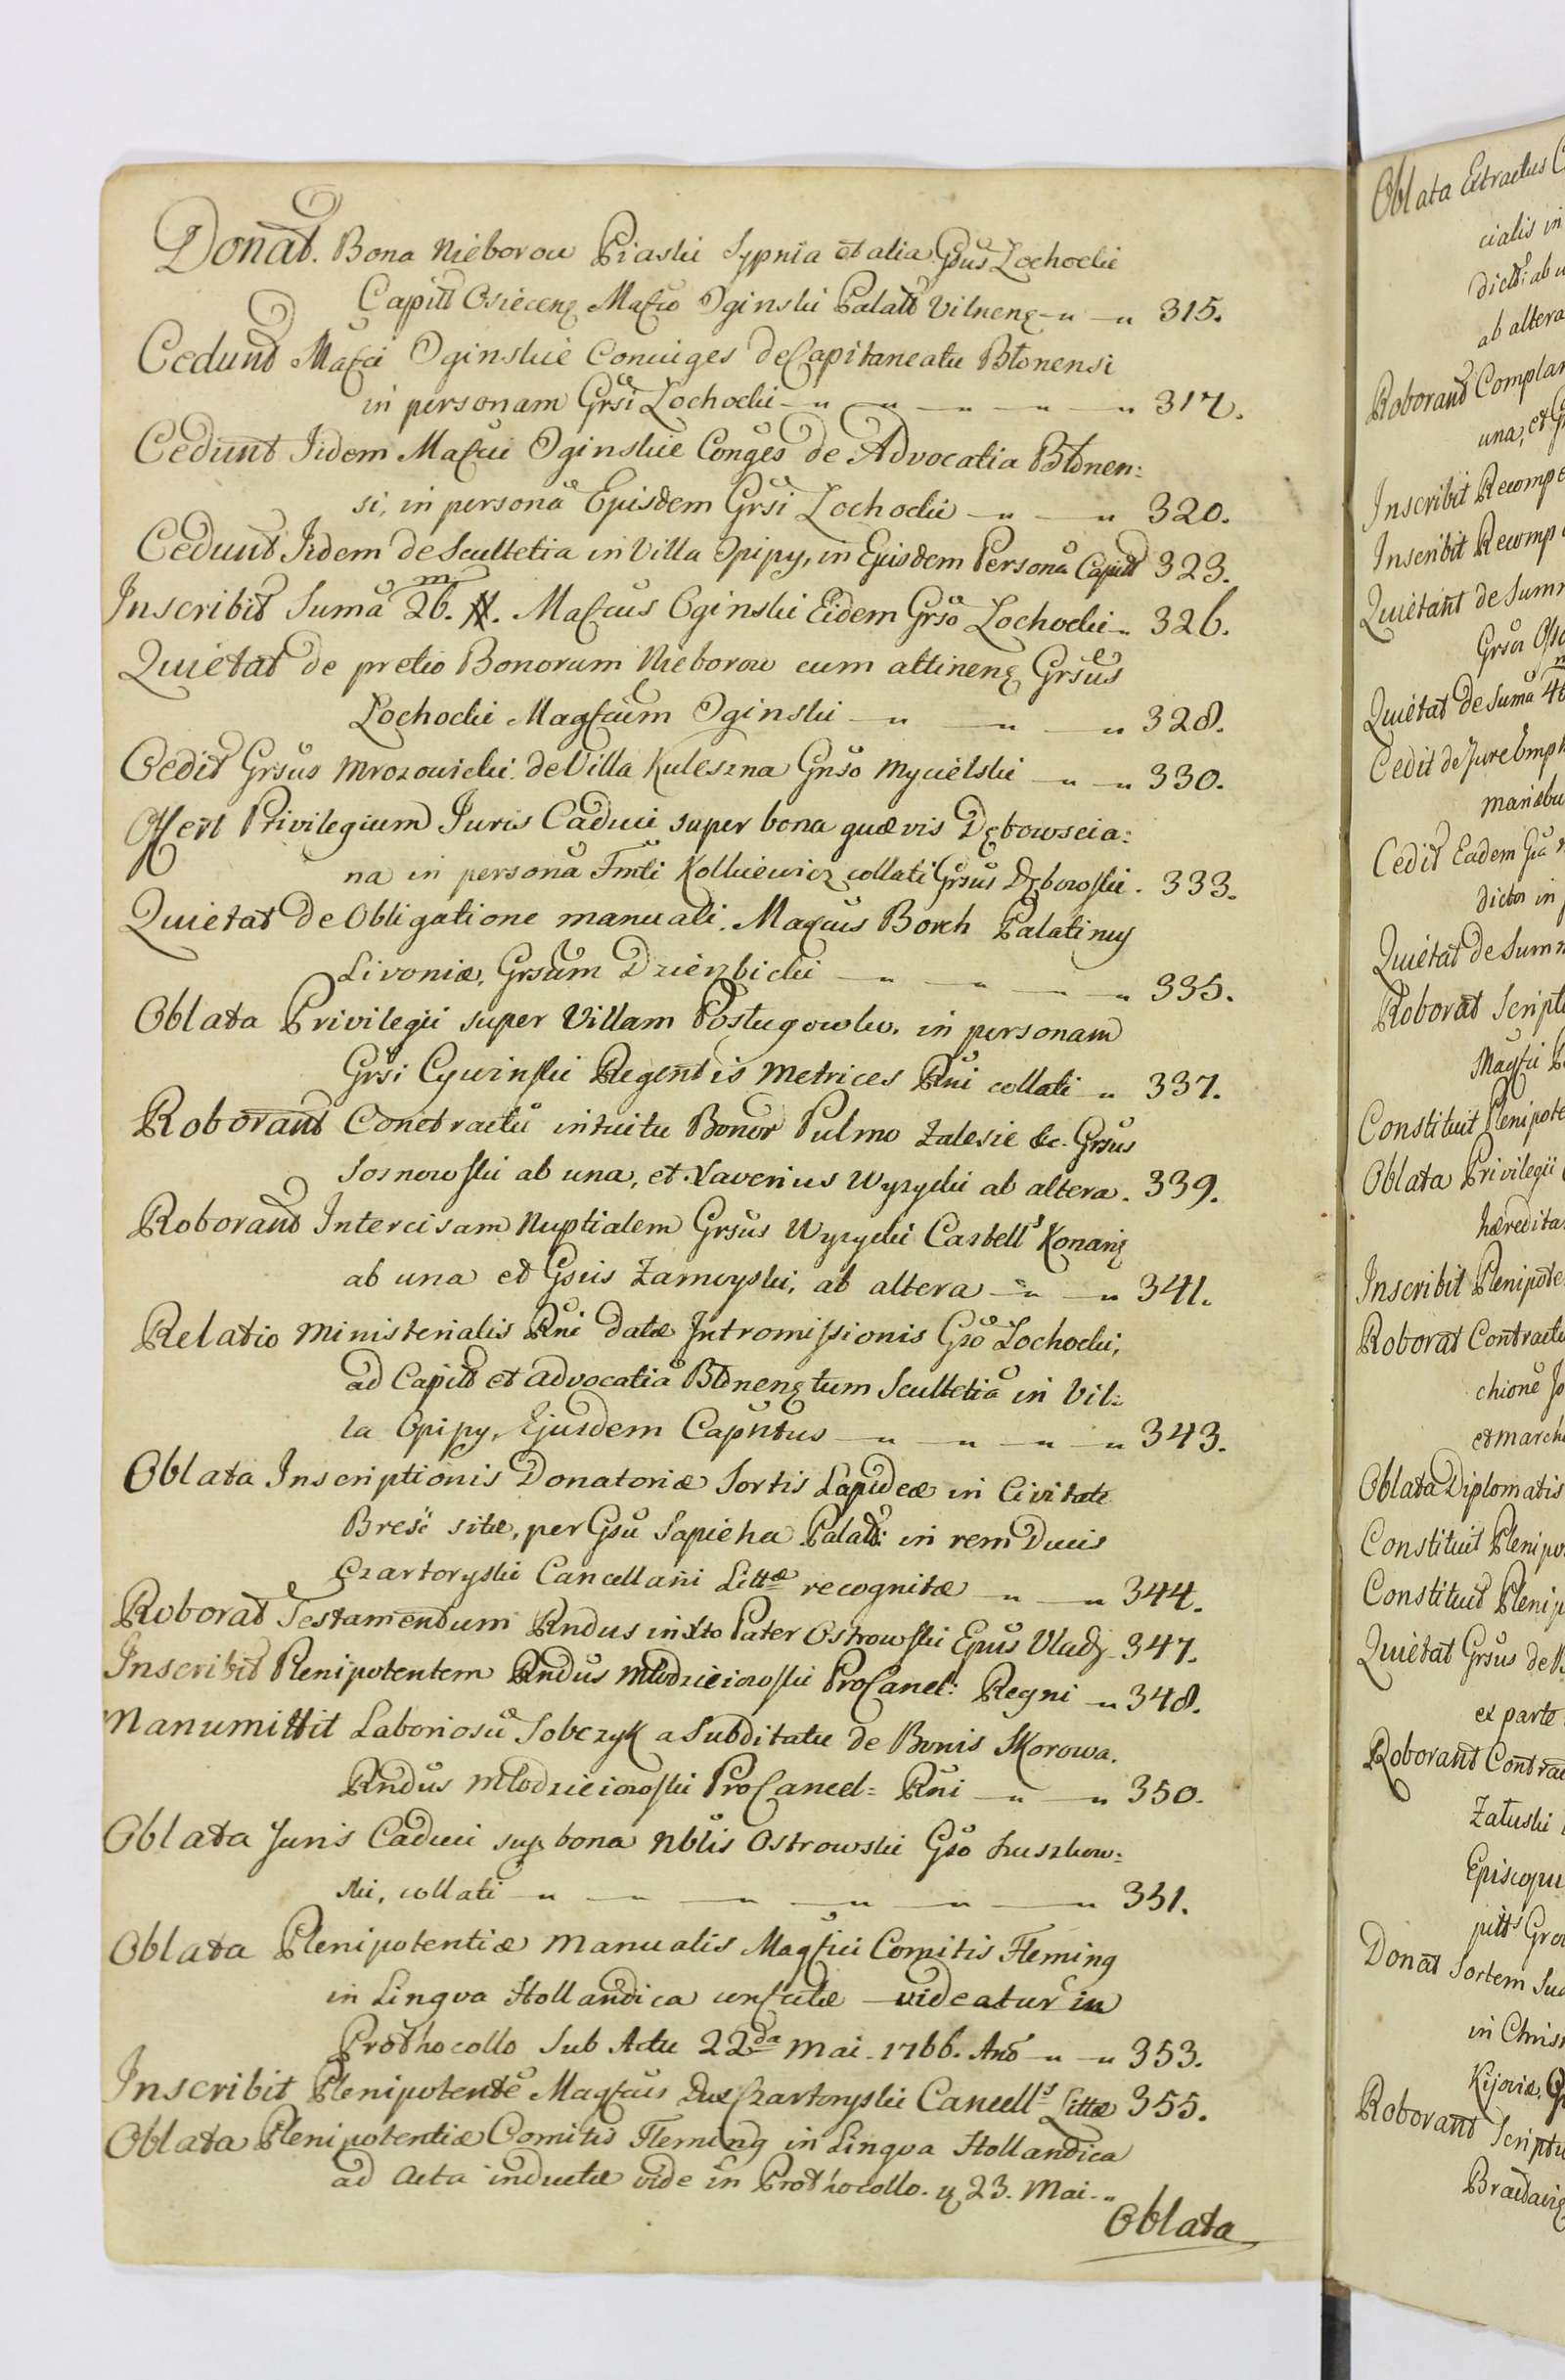 Donat. Bona Nieborow Piaski Sypnia et alia Gsus Łochocki
Capitt Osiecenę Mafco Oginski Palatt Vilnenę 315.
Cedunt Mafci Oginskie Coniuges de Capitaneatu Błonensi
in personam Grsi Łochocki 317.
Cedunt Iidem Mafcui Oginskie Conges de Advocatia Błonen:
si, in persona Ejusdem Grsi Łochocki 320.
Cedunt Iidem de Scultetia in Villa Opipy, in Ejusdem Persona Capitt 323.
Inscribit Suma 26. m Mafcus Oginski Eidem Grso Łochocki 326.
Quietat de pretio Bonorum Nieborow cum attinenę Grsus
Łochocki Magfcum Oginski 328.
Cedit Grsus Mrozowicki de Villa Kuleszna Gnso Mycielski 330.
Offert Privilegium Juris Caduci super bona quævis Dębowscia:
na in persona Fmti Kolkiewicz collati Grsus Dębowski. 333.
Quietat de Obligatione manuali. Mafcus Borch Palatinus
Livoniæ, Grsum Dzierzbicki 335.
Oblata Privilegii super Villam Postugowku. in personam
Grsi Cywinski Regentis Metrices Rni collati 337.
Roborant Contractu intuitu Bonor Pulmo Zalesie &c. Grsus
Sosnowski ab una, et Xaverius Wyzycki ab altera. 339.
Roborant Intercisam Nuptialem Grsus Wyzycki Castell Konarę
ab una et Gsus Zamoyski, ab altera 341.
Relatio Ministerialis Rni datæ Intromissionis Gso Łochocki,
ad Capitt et Advocatia Błonenę tum Scultetia in Vil:
la Opipy, Ejusdem Capntus 343.
Oblata Inscriptionis Donatoriæ Sortis Lapideæ in Civitate
Bresć sitæ, per Gsu Sapieha Palatt: in rem Ducis
Czartoryski Cancellarii Littæ recognitæ 344.
Roborat Testamentum Rndus in Xto Pater Ostrowski Epus Vladę 347.
Inscribit Plenipotentem Rndus Młodzieiowski ProCancel: Regni 348.
Manumittit Laboriosu Sobczyk a Subditatu de Bonis Skorowa.
Rndus Młodzieiowski ProCancel= Rni 350.
Oblata Juris Caduci sup bona Nblis Ostrowski Gso Łuszkow:
ski, collati 351.
Oblata Plenipotentiæ Manualis Magfici Comitis Fleming
in Lingva Hollandica confectæ videatur in
Prothocollo Sub Actu 22da Mai 1766. Ano 353.
Inscribit Plenipotente Magfcus Dux Czartoryski Cancell Littæ 355.
Oblata Plenipotentiæ Comitis Fleming in Lingva Hollandica
ad Acta inductæ vide in Prothocollo. 23. Mai
Oblata
Oblata Extractus
cialis in
ab altera
Roborant Complan
una, et
Inscribit Recompe
Inscribit Recomp
Quietant de Sum
Quietat de Suma
Cedit de Jure Emph
Cedit Eadem
dictor in
Quietat de Sum
Roborat Script
Constituit Plenipote
Oblata Privilegii
hæredita
Inscribit Plenipote
Roborat Contractu
chione
et march
Oblata Diplomatis
Constituit Plenipo
Constituit Plenip
Quietat Grsus de
ex parte
Roborant Contra
Załuski
Episcopu
Donat Sortem
in Chris
Kijoviæ,
Roborant Scriptu